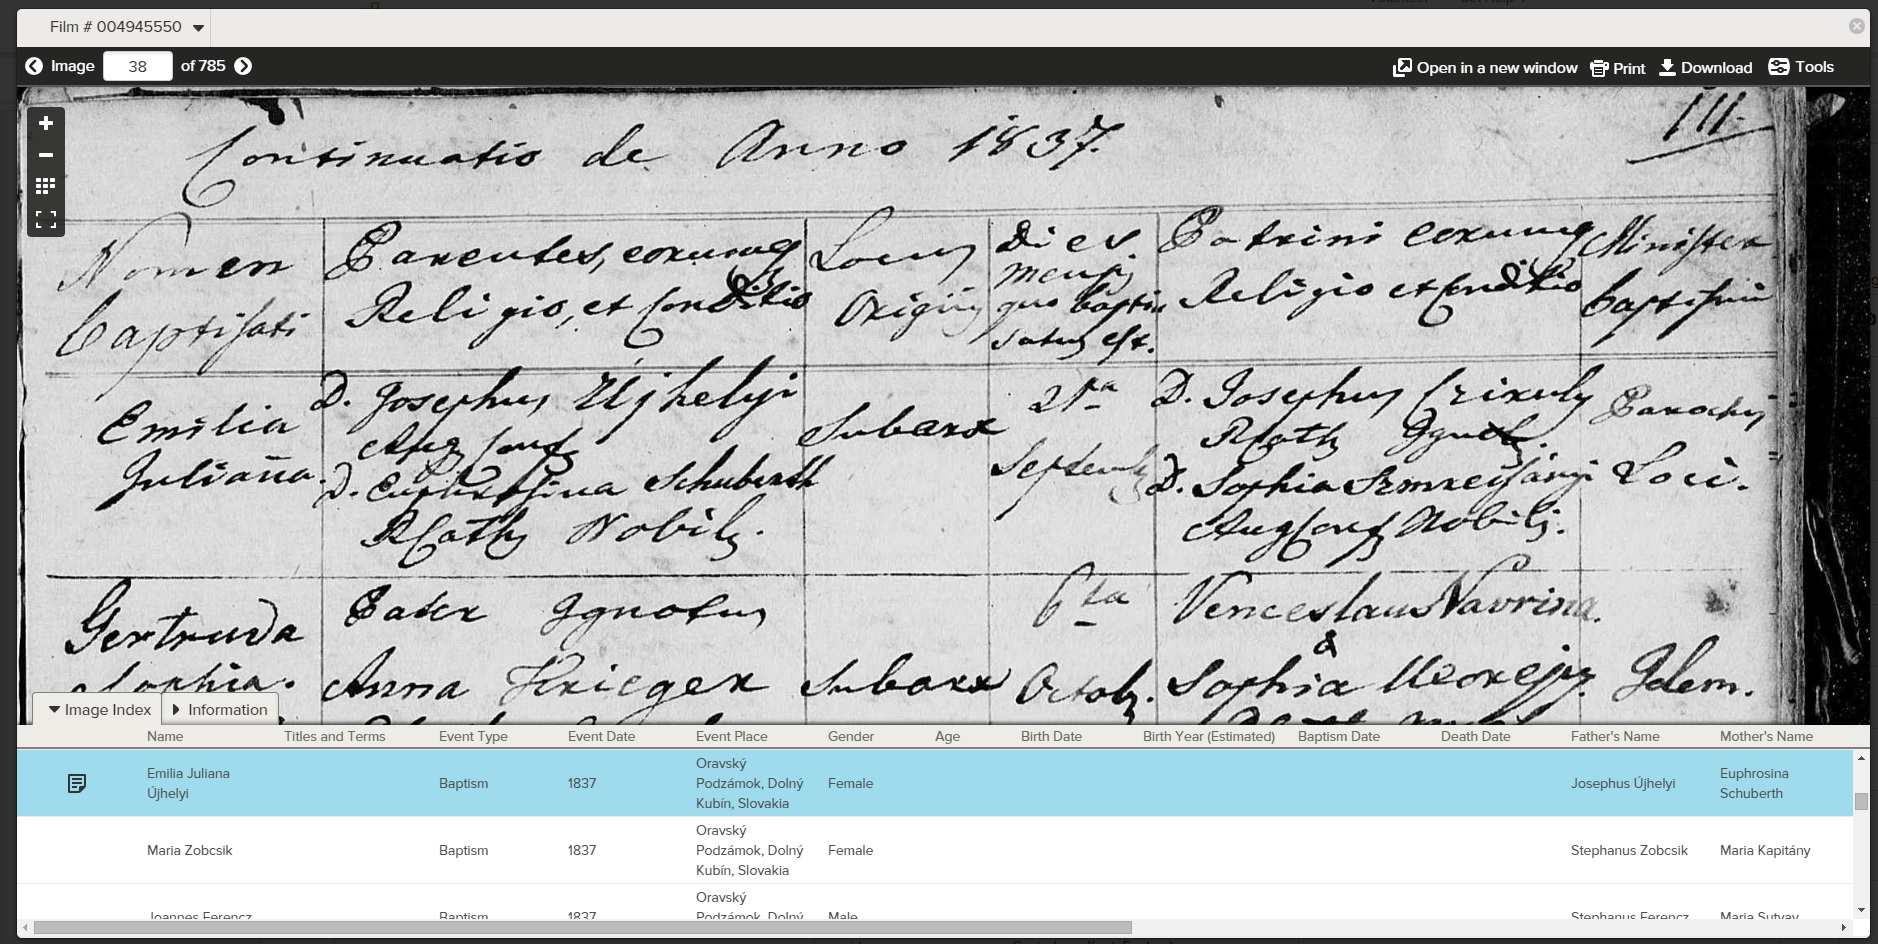 Film # 004945550
Image 38 of 785
Open in a new window Print Download Tools
111.
Continuatio de Anno 1837.
Nomen
baptisati
Parentes, eorumq
Religio, et Conditio
Locus
Originis
Dies
mensis
quo bapti-
satus est.
Patrini eorumq
Religio et Conditio
Minister
baptismi
Emilia
Juliana.
D. Josephus Ujhelyi
Aug Conf
D. Euphrosina Schuberth
RCath Nobiles.
Subarx
21ma
Septemb
D. Josephus Czikuly
RCath
D. Sophia Szmrecsányi
Aug Conf Nobiles.
Parochus
Loci.
Gertruda
Sophia.
Pater Ignotus
Anna Krieger
Subarx
6ta
Octob.
Venceslaus Navrina.
&
Sophia
Idem.
Image Index Information
Name Titles and Terms Event Type Event Date Event Place Gender Age Birth Date Birth Year (Estimated) Baptism Date Death Date Father's Name Mother's Name
Emilia Juliana
Újhelyi
Baptism
1837
Oravský
Podzámok, Dolný
Kubín, Slovakia
Female
Josephus Újhelyi
Euphrosina
Schuberth
Maria Zobcsik
Baptism
1837
Oravský
Podzámok, Dolný
Kubín, Slovakia
Female
Stephanus Zobcsik
Maria Kapitány
Joannes Ferencz
Baptism
1837
Oravský
Podzámok, Dolný
Male
Stephanus Ferencz
Maria Sutvay